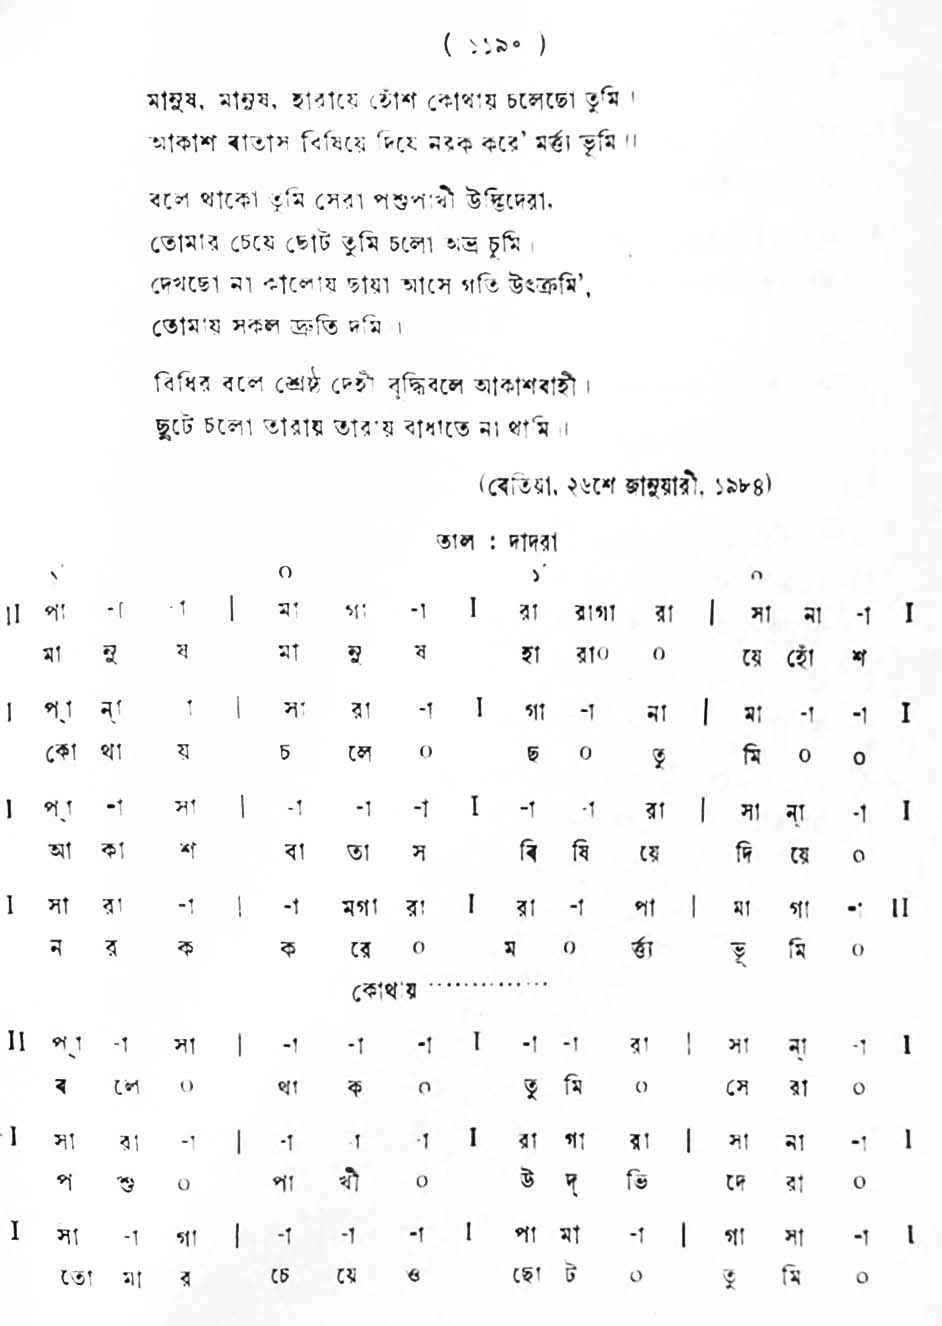 ( ১১৯০ )
মানুষ, মানুষ, হারায়ে হোঁশ কোথায় চলেছো তুমি ।
আকাশ বাতাস বিষিয়ে দিয়ে নরক করে' মর্ত্ত্য ভূমি ॥
বলে থাকো তুমি সেরা পশুপাখী উদ্ভিদেরা,
তোমার চেয়ে ছোট তুমি চলো অভ্র চুমি ।
দেখছো না কালোয় ছায়া আসে গতি উৎক্রমি',
তোমায় সকল দ্রুতি দমি ।
বিধির বলে শ্রেষ্ঠ দেহী বুদ্ধিবলে আকাশবাহী ।
ছুটে চলো তারায় তারায় বাধাতে না থামি ॥
(বেতিয়া, ২৬শে জানুয়ারী, ১৯৮৪)
তাল : দাদরা
১´ ০ ১´ ০
II পা -া -া | মা গা -া I রা রাগা রা | সা না -া I
মা নু ষ মা নু ষ হা রা০ ০ য়ে হোঁ শ
I প্া ন্া া | সা রা -া I গা -া না | মা -া -া I
কো থা য় চ লে ০ ছ ০ তু মি ০ ০
I প্া -া সা | -া -া -া I -া -া রা | সা ন্া -া I
আ কা শ বা তা স বি ষি য়ে দি য়ে ০
I সা রা -া | -া মগা রা I রা -া পা | মা গা -া II
ন র ক ক রে ০ ম ০ র্ত্ত্য ভূ মি ০
কোথায় ··············
II প্া -া সা | -া -া -া I -া -া রা | সা ন্া -া I
ব লে ০ থা ক ০ তু মি ০ সে রা ০
I সা রা -া | -া -া -া I রা গা রা | সা না -া I
প শু ০ পা খী ০ উ দ্ ভি দে রা ০
I সা -া গা | -া -া -া I পা মা -া | গা সা -া I
তো মা র চে য়ে ও ছো ট ০ তু মি ০